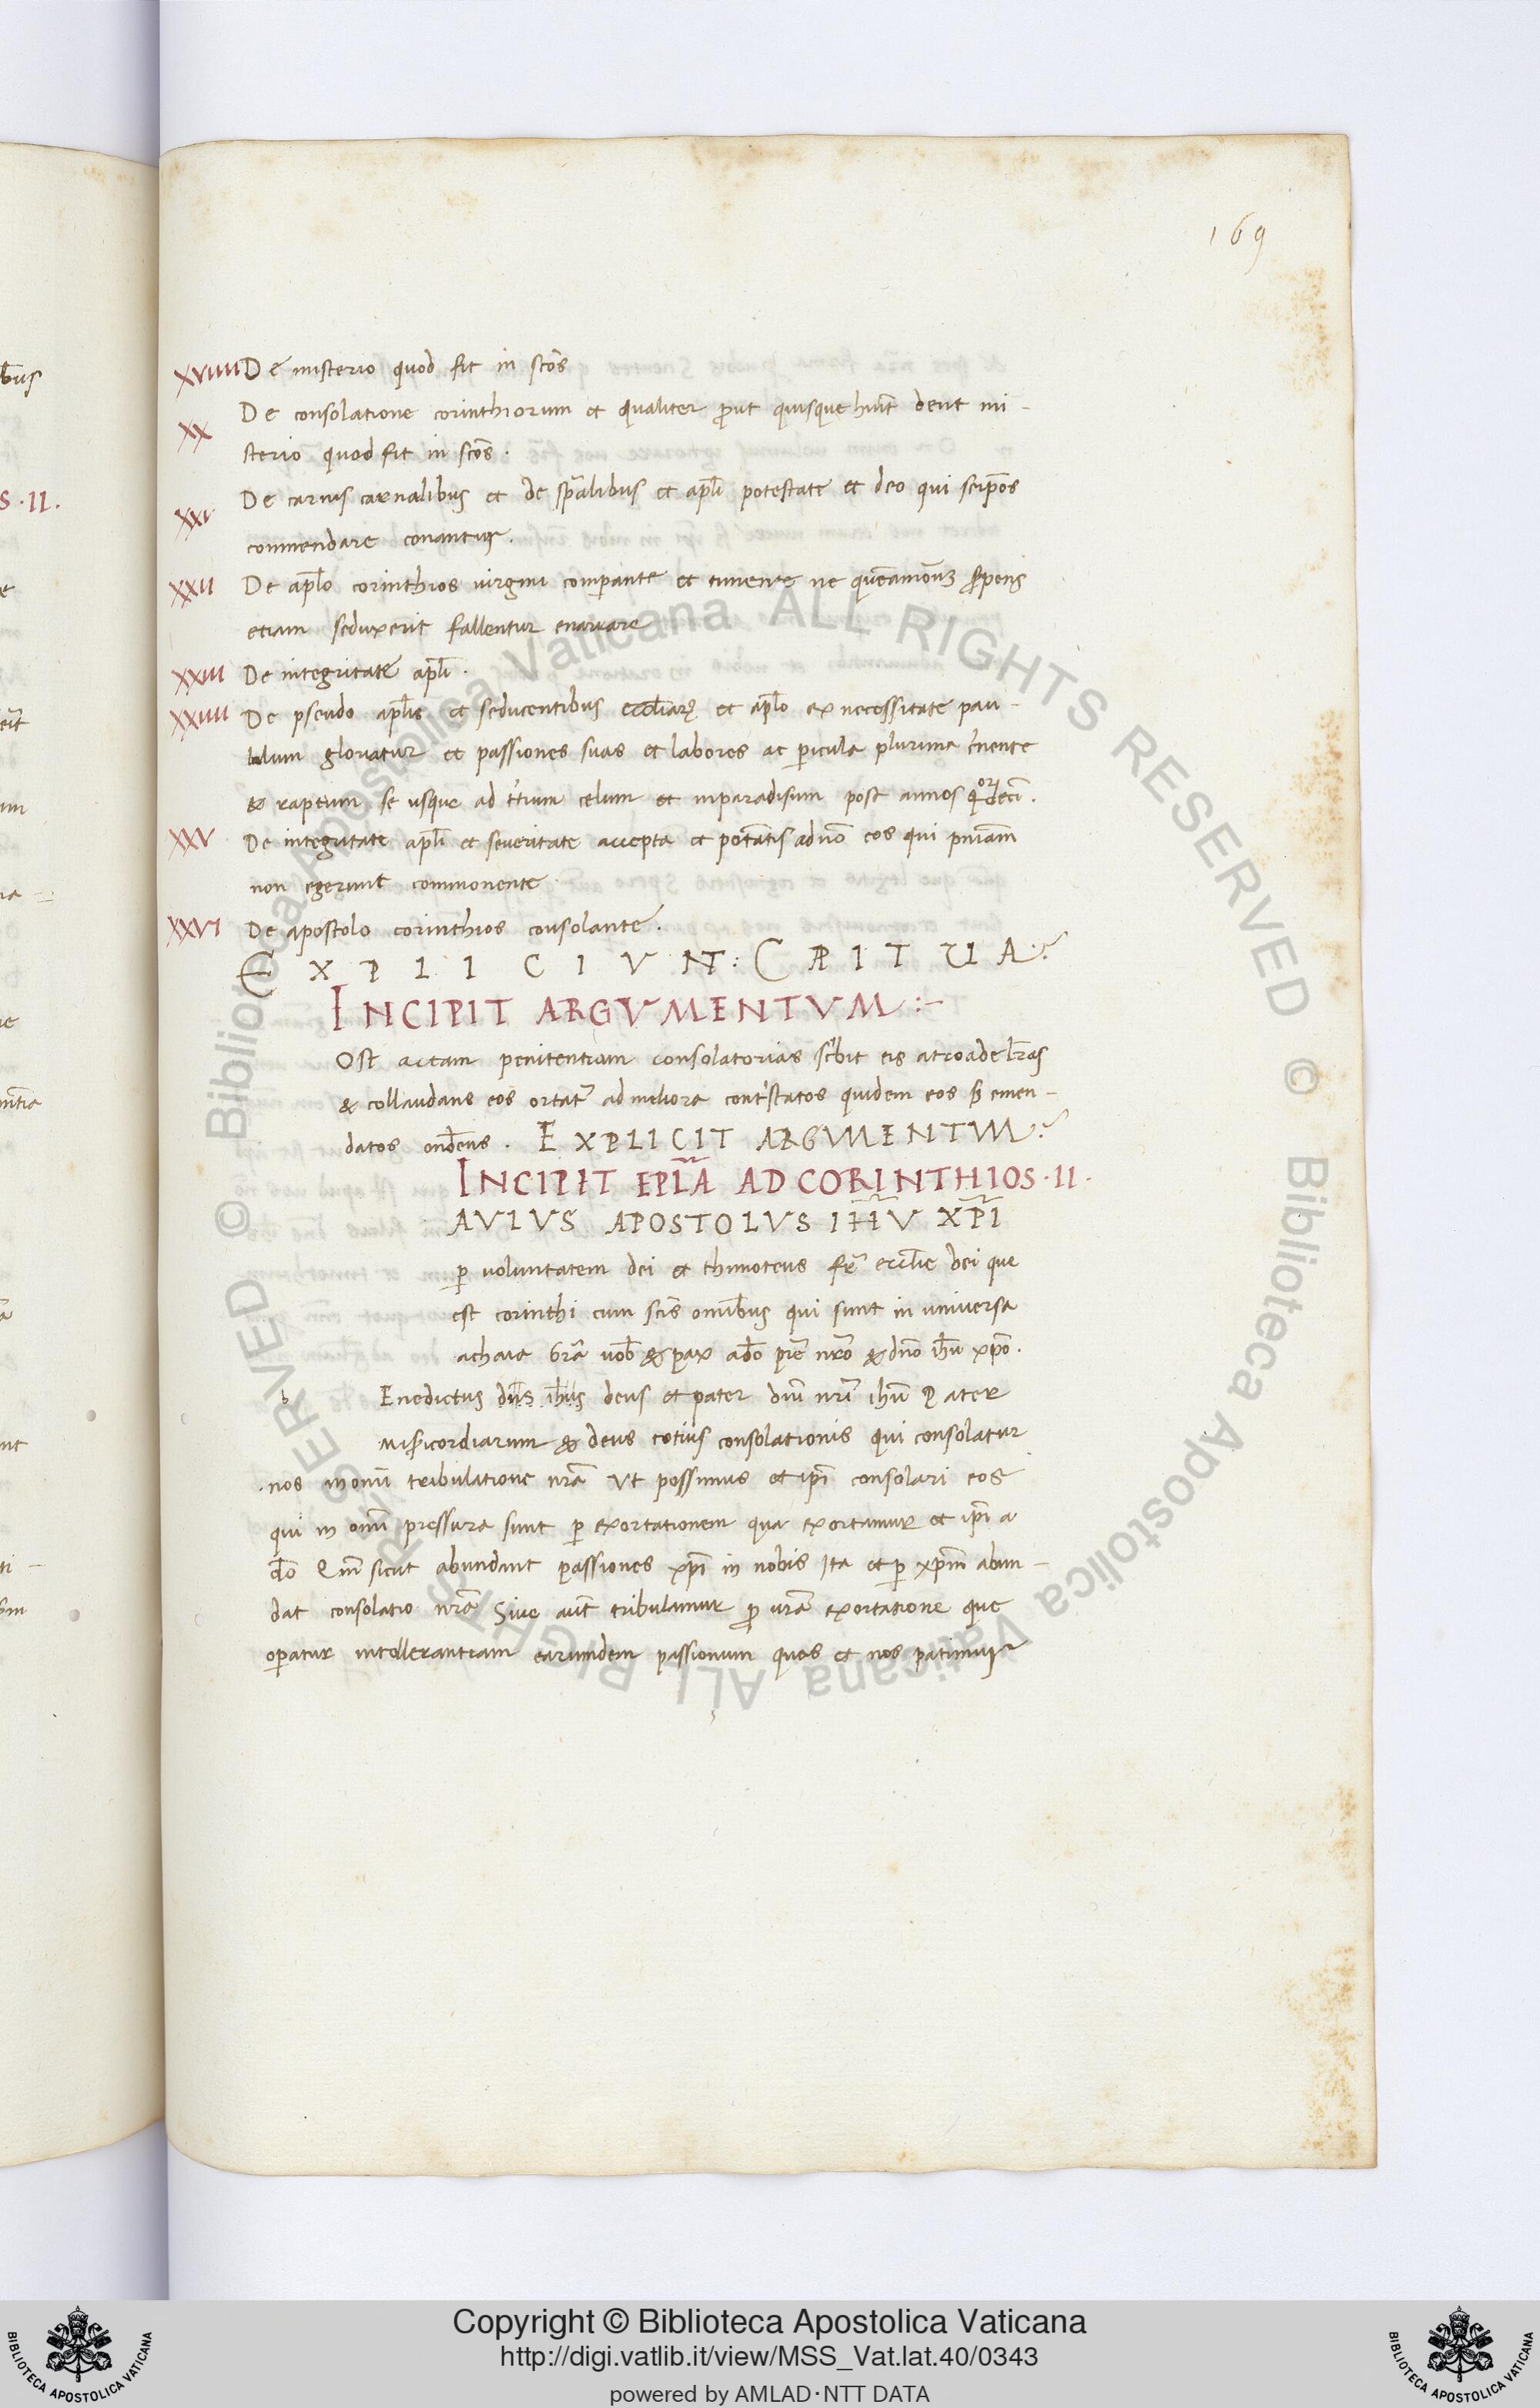 169
XVIIII De misterio quod fit in scõs
XX De consolatione corinthiorum et qualiter prout quisque hũt dent mi-
sterio quod fit in scõs.
XXI De carnis carnalibus et de spũalibus et apłi potestate et deo qui seipõs
commendare conantur.
XXII De apło corinthios virgini comparante et timente ne
etiam seduxerit fallentur enarrare
XXIII De integritate apłi.
XXIIII De pseudo apłis et seducentibus et apło ex necessitate pau-
lulum gloriatur et passiones suas et labores ac pericula plurima
& raptum se usque ad celum et inparadisum post annos
XXV De integritate apłi et severitate accepta et adnõ eos qui pniam̃
non egerunt commonente
XXVI De apostolo corinthios consolante.
EXPLICIVNT: CAPITULA:
INCIPIT ARGVMENTVM:-
Ost actam penitentiam consolatorias scibit eis atroade lr̃as
& collaudans eos ortat̃ admeliora quidem eos emen-
datos ond̃ens. EXPLICIT ARGVMENTVM:
INCIPIT EPL̃A AD CORINTHIOS·II·
AVLVS APOSTOLVS IH̃V XP̃I
ꝑ voluntatem dei et thimoteus fr̃ eccłie dei que
est corinthi cum scĩs omĩbus qui sunt in universa
achaia Grã vob̃ & pax adõ pr̃e nr̃o & dnõ ihũ xp̃o.
b Enedictus dñs ihũs deus et pater dnĩ nr̃i ihũ Pater
misericordiarum & deus totius consolationis qui consolatur
nos inomĩ tribulatione nr̃a Ut possimus et ip̃i consolari eos
qui in omĩ pressura sunt ꝑ exortationem qua exortamur et ip̃i a
dõ Qm̃ sicut abundant passiones xp̃i in nobis Ita et ꝑ xp̃m abun-
dat consolatio nr̃a Sive aut̃ tribulamur ꝓ vr̃a exortatione que
oꝑatur intollerantiam earumdem passionum quas et nos patimur
bus
S·II.
© Biblioteca Apostolica Vaticana ALL RIGHTS RESERVED © Biblioteca Apostolica Vaticana ALL RIGHTS RESERVED
BIBLIOTECA APOSTOLICA VATICANA
Copyright © Biblioteca Apostolica Vaticana
http://digi.vatlib.it/view/MSS_Vat.lat.40/0343
powered by AMLAD·NTT DATA
BIBLIOTECA APOSTOLICA VATICANA